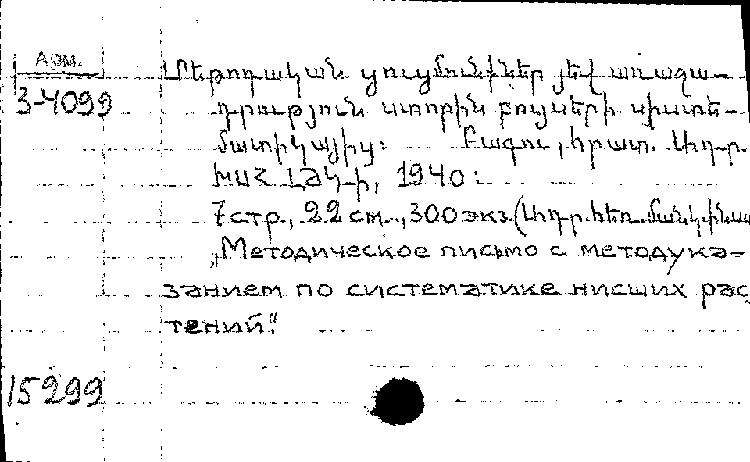 АРМ.
3-4099
Մեթոդական ցուցմունքներ յեվ առաջա-
դրություն ստորին բույսերի սիստե-
մատիկայից: Բագու, հրատ. Ադր.
ԽՍՀ ԼԺԿ-ի, 1940:
7 стр., 22 см., 300 экз. (Ադր. հեռ. մանկինստ
„Методическое письмо с методука-
занием по систематике нисших рас
тений."
15299